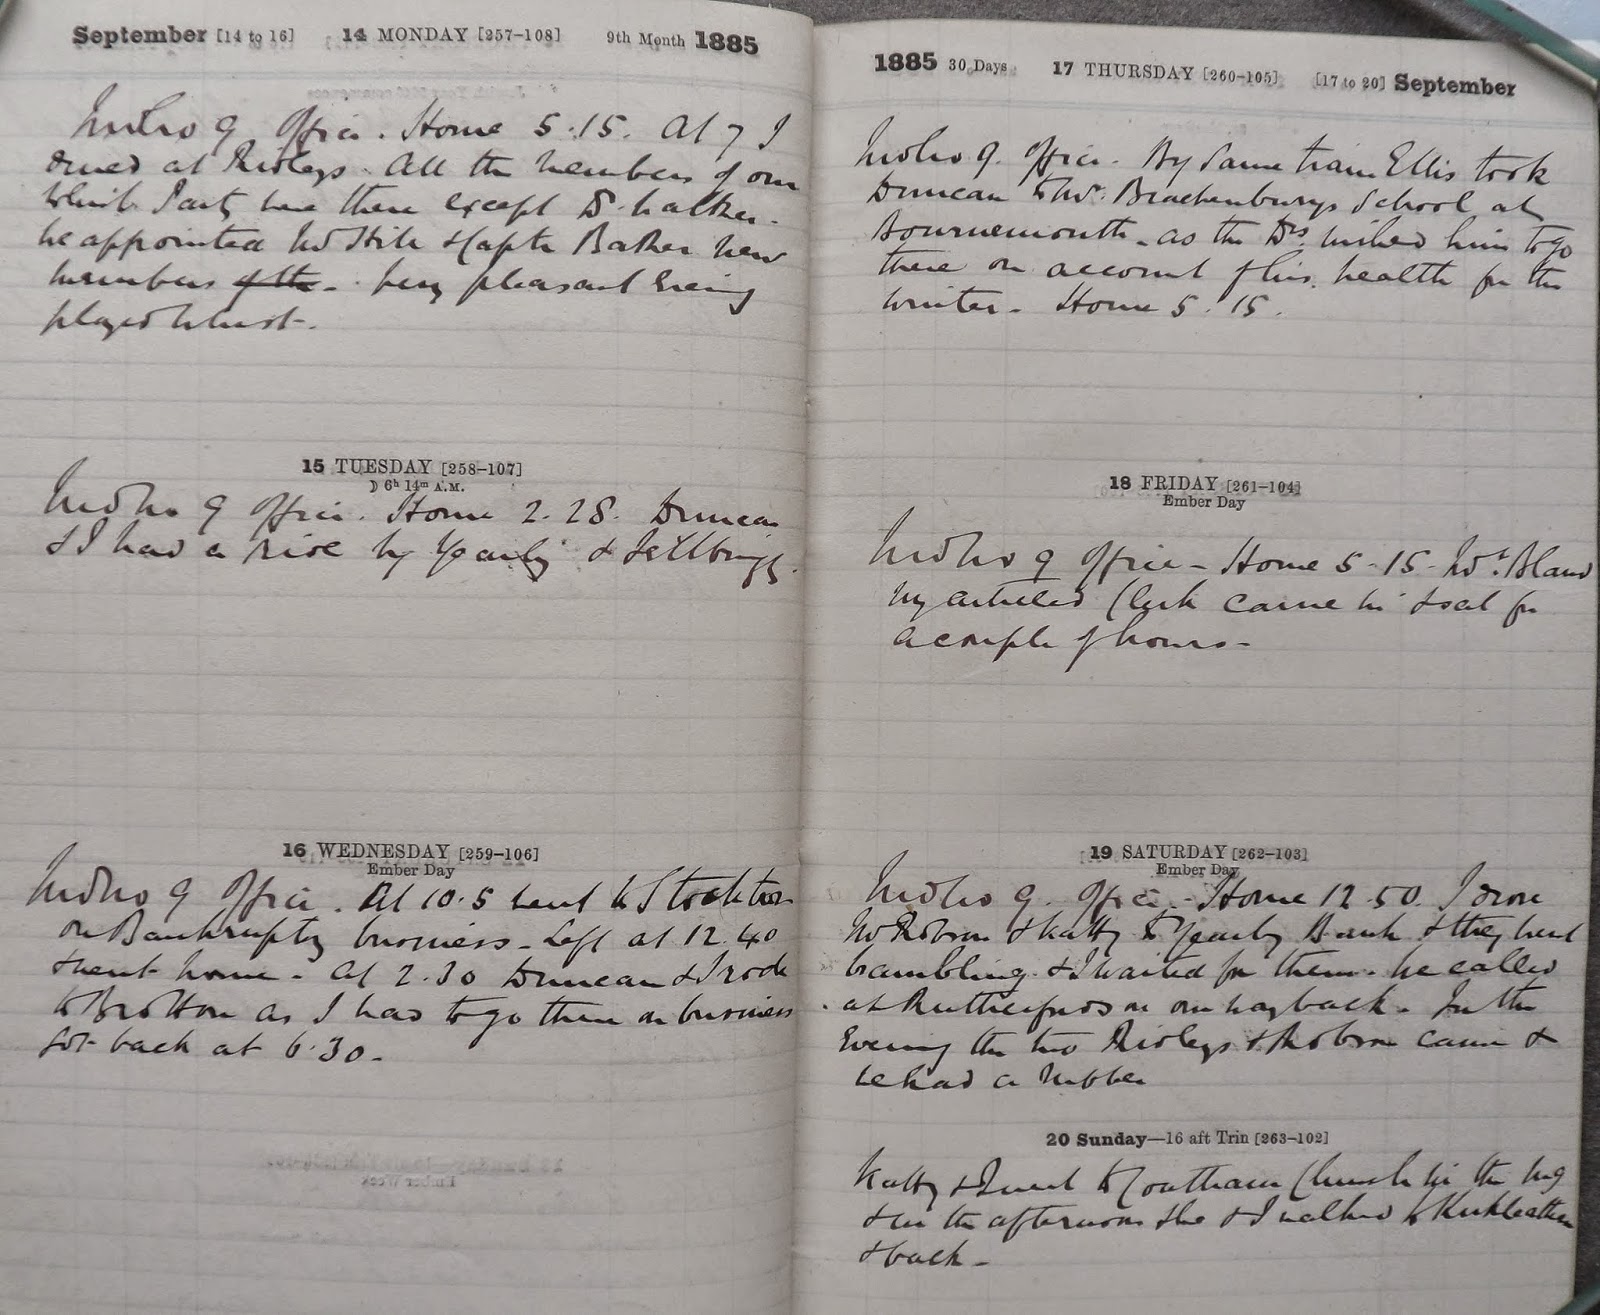 September [14 to 16] 14 MONDAY [257-108] 9th Month 1885
Mdbro 9 Office. Home 5.15. At 7 I
dined at Ridleys. All the members of our
Whist Party were there except Dr. Walker.
We appointed Mr & Capt Baker new
members of the - Very pleasant Evening
played Whist.
15 TUESDAY [258-107]
☽ 6h 14m A.M.
Mdbro 9 Office. Home 2.28. Duncan
& I had a ride by Yearby &
16 WEDNESDAY [259-106]
Ember Day
Mdbro 9 Office. At 10.5 went to Stockton
on Bankruptcy business - Left at 12.40
& went home - At 2.30 Duncan & I rode
to Brotton as I had to go there on business
Got back at 6.30.
1885 30 Days 17 THURSDAY [260-105] [17 to 20] September
Mdbro 9. Office. By same train Ellis took
Duncan to Mr. Brackenburys School at
Bournemouth - as the Drs. wished him to go
there on account of his health for the
winter - Home 5.15.
18 FRIDAY [261-104]
Ember Day
Mdbro 9 Office - Home 5.15. Mr. Bland
my articled Clerk came in & sat for
a couple of hours -
19 SATURDAY [262-103]
Ember Day
Mdbro 9. Office - Home 12.50. I drove
Mr Robson & Katty to Yearby Bank & they went
brambling & I waited for them. We called
at Rutherfords on our way back - In the
Evening the two Ridleys & Robson came &
we had a rubber
20 Sunday—16 aft Trin [263-102]
Katty & I went to Coatham Church in the mg
& in the afternoon she & I walked to Kirkleatham
& back -